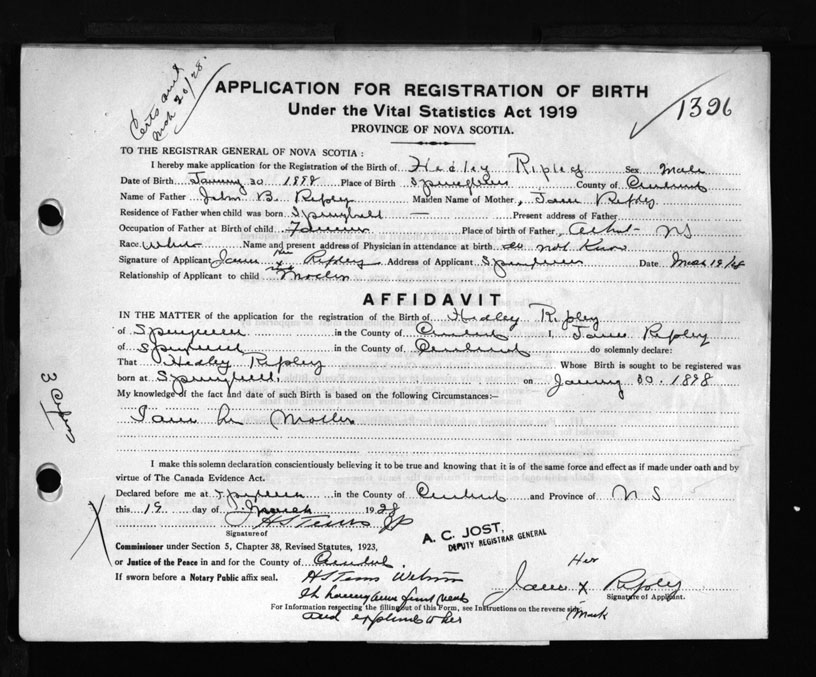 Mch 20/28.
APPLICATION FOR REGISTRATION OF BIRTH
Under the Vital Statistics Act 1919
1396
PROVINCE OF NOVA SCOTIA.
TO THE REGISTRAR GENERAL OF NOVA SCOTIA :
I hereby make application for the Registration of the Birth of Hedley Ripley Sex Male
Date of Birth January 30 1898 Place of Birth Springhill County of Cumberland
Name of Father John B. Ripley Maiden Name of Mother, Jane Ripley
Residence of Father when child was born Springhill — Present address of Father
Occupation of Father at Birth of child Farmer Place of birth of Father, NS
Race White Name and present address of Physician in attendance at birth do not know
Signature of Applicant Jane Her x Mark Ripley Address of Applicant Springhill Date Mar 19/28
Relationship of Applicant to child Mother
AFFIDAVIT
IN THE MATTER of the application for the registration of the Birth of Hedley Ripley
of Springhill in the County of Cumberland I, Jane Ripley
of Springhill in the County of Cumberland do solemnly declare:
That Hedley Ripley Whose Birth is sought to be registered was
born at Springhill on January 30. 1898
My knowledge of the fact and date of such Birth is based on the following Circumstances:—
I am his Mother
3
I make this solemn declaration conscientiously believing it to be true and knowing that it is of the same force and effect as if made under oath and by
virtue of The Canada Evidence Act.
Declared before me at Springhill in the County of Cumberland and Province of N S
this 19 day of March 1928
JP
Signature of
A. C. JOST,
DEPUTY REGISTRAR GENERAL
Commissioner under Section 5, Chapter 38, Revised Statutes, 1923,
or Justice of the Peace in and for the County of Cumberland
If sworn before a Notary Public affix seal.
Witness
Her
Jane x Ripley
Mark
Signature of Applicant.
having been first read
For Information respecting the filling out of this Form, see Instructions on the reverse side.
and explained to her